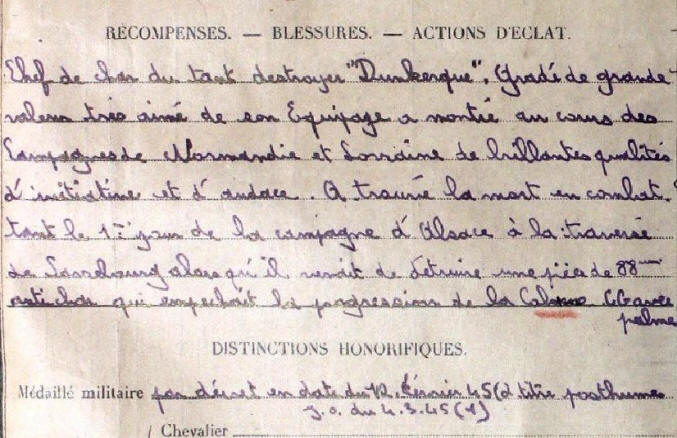 RÉCOMPENSES. — BLESSURES. — ACTIONS D'ÉCLAT.
Chef de char du tant destroyer "Dunkerque". Gradé de grande
valeur très aimé de son Equipage a montré au cours des
Campagnes de Normandie et Lorraine de brillantes qualités
d'initiative et d'audace. A trouvé la mort en combat.
tant le 1er jour de la campagne d'Alsace à la traversé
de Sarrebourg alors qu'il venait de détruire une pièce de 88mm
anti char qui empechait la progression de la Colonne CG avec
palme
DISTINCTIONS HONORIFIQUES.
Médaillé militaire par décret en date du 12. février 45 (à titre posthume
J.O. du 4.3.45 (1)
/ Chevalier